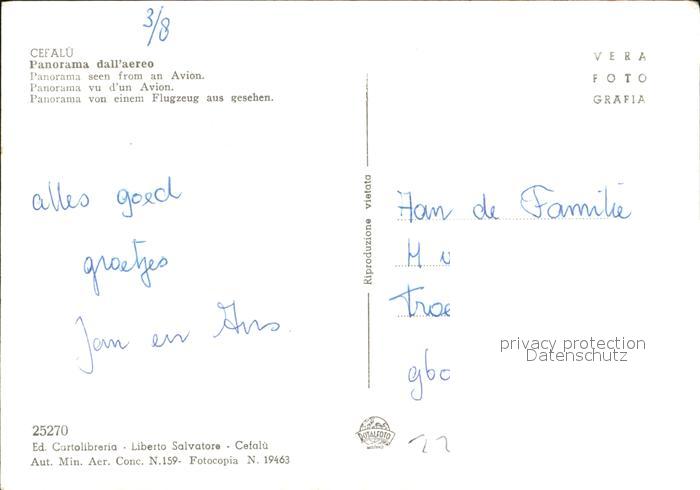 3/8
CEFALÙ
Panorama dall'aereo
Panorama seen from an Avion.
Panorama vu d'un Avion.
Panorama von einem Flugzeug aus gesehen.
VERA
FOTO
GRAFIA
alles goed
groetjes
Jan en
Riproduzione vietata
Aan de Familie
M v
privacy protection
Datenschutz
25270
Ed. Cartolibreria - Liberto Salvatore - Cefalù
Aut. Min. Aer. Conc. N.159- Fotocopia N. 19463